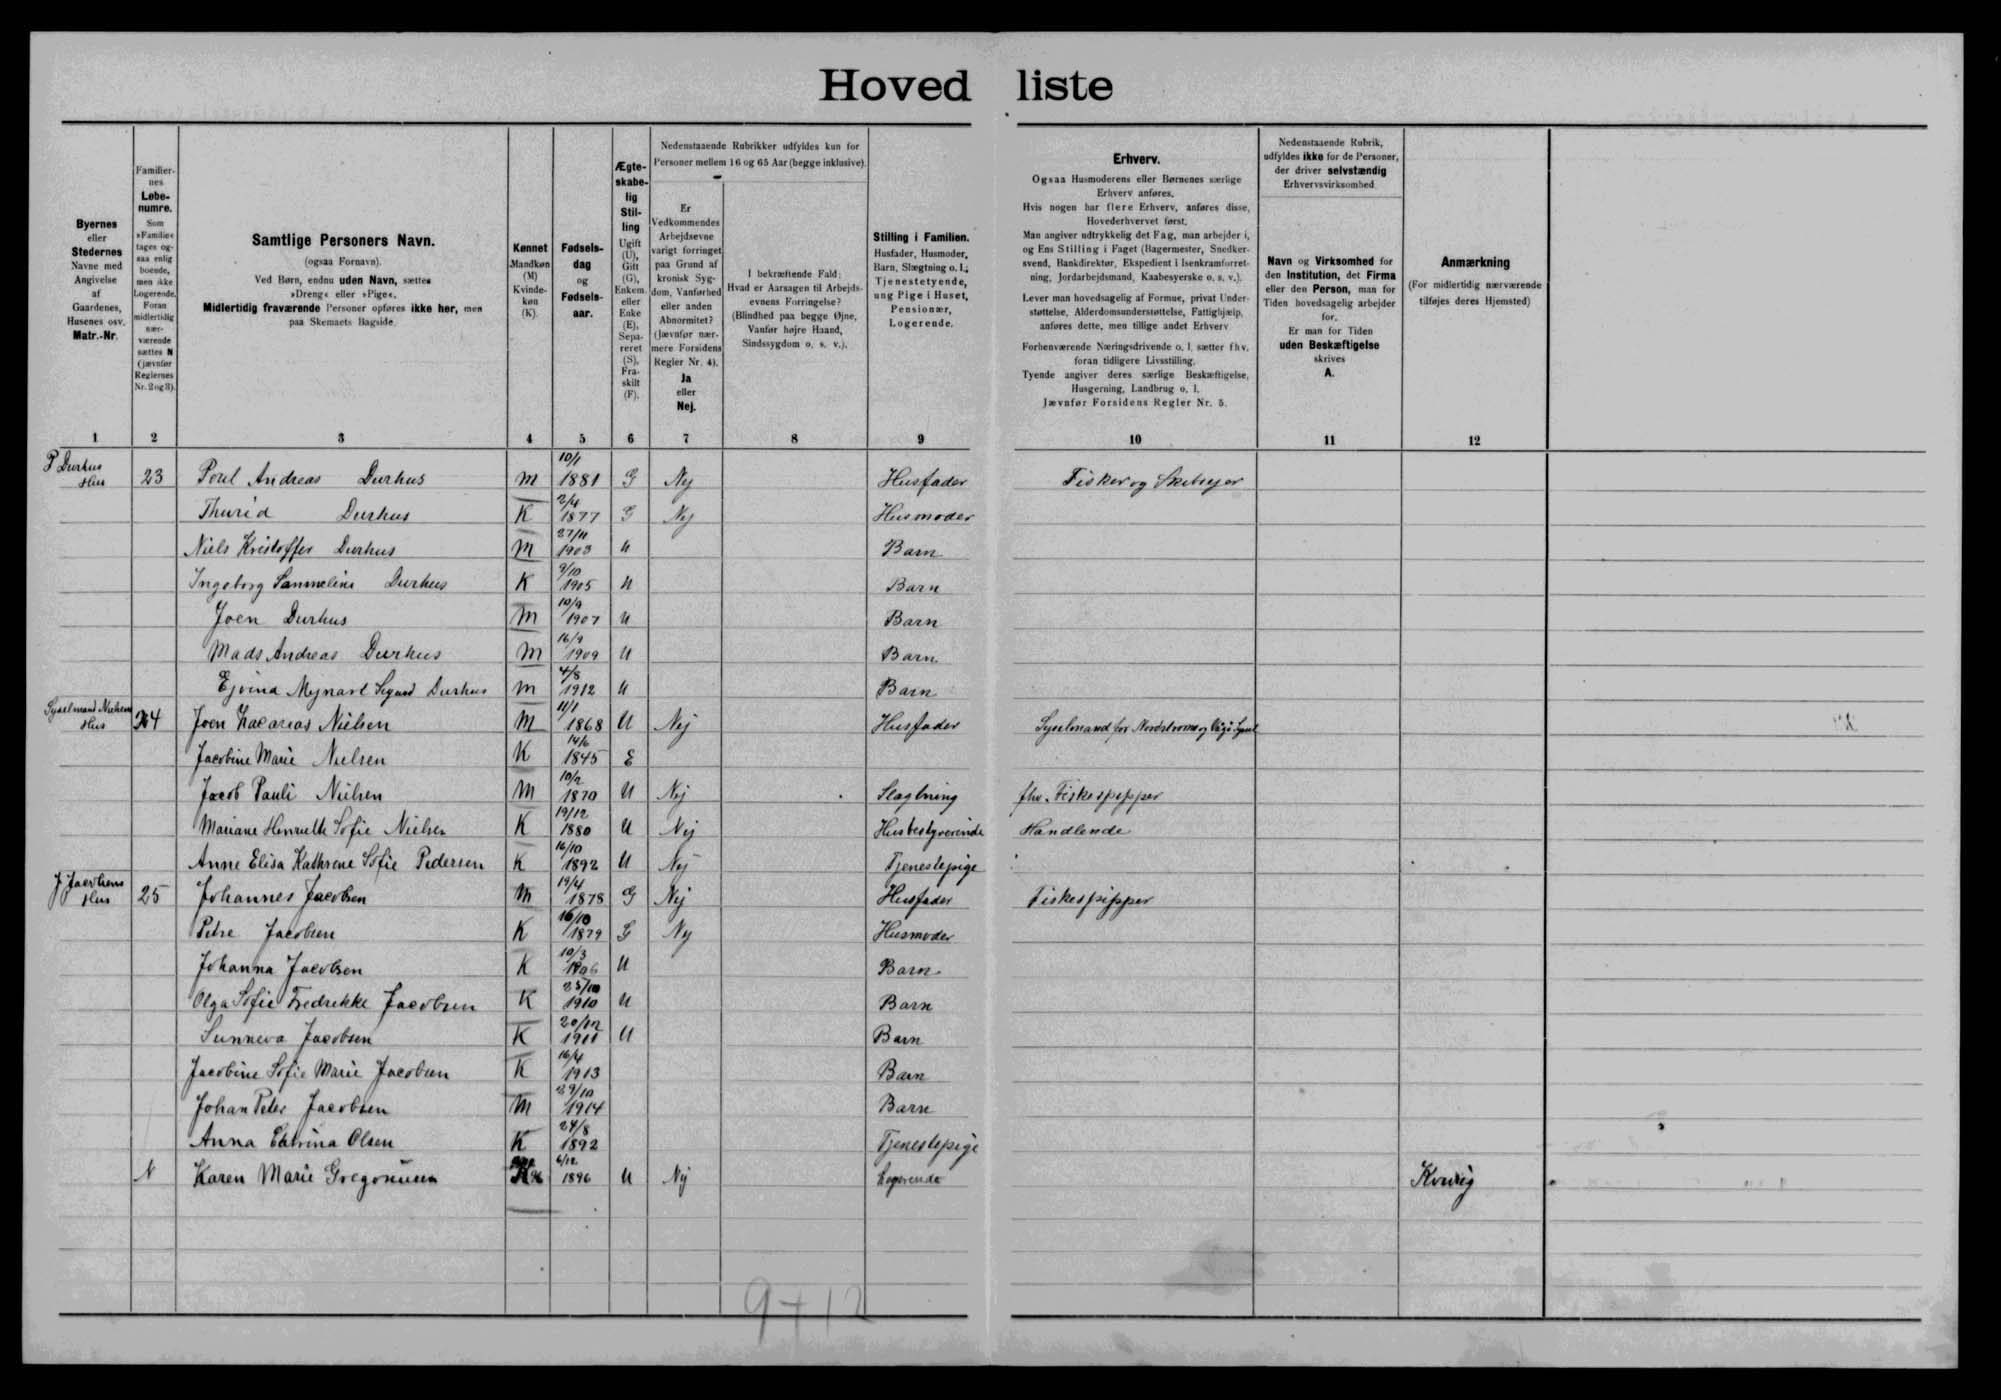 Hovedliste
Byernes
eller
Stedernes
Navne med
Angivelse
af
Gaardenes,
Husenes osv.
Matr.-Nr.
Familier-
nes
Løbe-
numre.
Som
»Familie«
tages og-
saa enlig
boende,
men ikke
Logerende.
Foran
midlertidig
nær-
værende
sættes N
(jævnfør
Reglernes
Nr. 2 og 3).
Samtlige Personers Navn.
(ogsaa Fornavn).
Ved Børn, endnu uden Navn, sættes
»Dreng« eller »Pige«.
Midlertidig fraværende Personer opføres ikke her, men
paa Skemaets Bagside.
Kønnet
Mandkøn
(M)
Kvinde-
køn
(K).
Fødsels-
dag
og
Fødsels-
aar.
Ægte-
skabe-
lig
Stil-
ling
Ugift
(U),
Gift
(G),
Enkem.
eller
Enke
(E),
Sepa-
reret
(S),
Fra-
skilt
(F).
Nedenstaaende Rubrikker udfyldes kun for
Personer mellem 16 og 65 Aar (begge inklusive).
Er
Vedkommendes
Arbejdsevne
varigt forringet
paa Grund af
kronisk Syg-
dom, Vanførhed
eller anden
Abnormitet?
(Jævnfør nær-
mere Forsidens
Regler Nr. 4).
Ja
eller
Nej.
I bekræftende Fald:
Hvad er Aarsagen til Arbejds-
evnens Forringelse?
(Blindhed paa begge Øjne,
Vanfør højre Haand,
Sindssygdom o. s. v.).
Stilling i Familien.
Husfader, Husmoder,
Barn, Slægtning o. l.;
Tjenestetyende,
ung Pige i Huset,
Pensionær,
Logerende.
Erhverv.
Ogsaa Husmoderens eller Børnenes særlige
Erhverv anføres.
Hvis nogen har flere Erhverv, anføres disse,
Hovederhvervet først.
Man angiver udtrykkelig det Fag, man arbejder i,
og Ens Stilling i Faget (Bagermester, Snedker-
svend, Bankdirektør, Ekspedient i Isenkramforret-
ning, Jordarbejdsmand, Kaabesyerske o. s. v.).
Lever man hovedsagelig af Formue, privat Under-
støttelse, Alderdomsunderstøttelse, Fattighjælp,
anføres dette, men tillige andet Erhverv
Forhenværende Næringsdrivende o. l. sætter fhv.
foran tidligere Livsstilling.
Tyende angiver deres særlige Beskæftigelse,
Husgerning, Landbrug o. l.
Jævnfør Forsidens Regler Nr. 5.
Nedenstaaende Rubrik,
udfyldes ikke for de Personer,
der driver selvstændig
Erhvervsvirksomhed
Navn og Virksomhed for
den Institution, det Firma
eller den Person, man for
Tiden hovedsagelig arbejder
for.
Er man for Tiden
uden Beskæftigelse
skrives
A.
Anmærkning
(For midlertidig nærværende
tilføjes deres Hjemsted)
1 2 3 4 5 6 7 8 9 10 11 12
P Durhus Hus 23 Poul Andreas Durhus M 10/1 1881 G Nej Husfader Fisker og Skibsejer
Thurid Durhus K 2/4 1877 G Nej Husmoder
Niels Kristoffer Durhus M 27/11 1903 U Barn
Ingeborg Sanneline Durhus K 9/10 1905 U Barn
Joen Durhus M 10/9 1907 U Barn
Mads Andreas Durhus M 16/9 1909 U Barn
Ejvind Mejnart Durhus M 4/8 1912 U Barn
Sysselmand Nielsens Hus 24 Joen Zacarias Nielsen M 11/1 1868 U Nej Husfader Sysselmand for Nordstrømø og Vågø Syssel
Jacobine Marie Nielsen K 14/6 1845 E
Jacob Pauli Nielsen M 10/2 1870 U Nej Slægtning fhv. Fiskeskipper
Mariane Henriette Sofie Nielsen K 19/12 1880 U Nej Husbestyrerinde Handlende
Anne Elisa Kathrene Sofie Pedersen K 16/10 1892 U Nej Tjenestepige
J Jacobsens Hus 25 Johannes Jacobsen M 19/4 1878 G Nej Husfader Fiskeskipper
Petre Jacobsen K 16/10 1879 G Nej Husmoder
Johanna Jacobsen K 10/3 1906 U Barn
Olga Sofie Fredrikke Jacobsen K 25/10 1910 U Barn
Sunneva Jacobsen K 20/12 1911 U Barn
Jacobine Sofie Marie Jacobsen K 16/4 1913 Barn
Johan Peter Jacobsen M 29/10 1914 Barn
Anna Olsen K 24/8 1892 Tjenestepige
N Karen Marie Gregoriusen K 6/12 1896 U Nej Logerende Kvivig
9+12